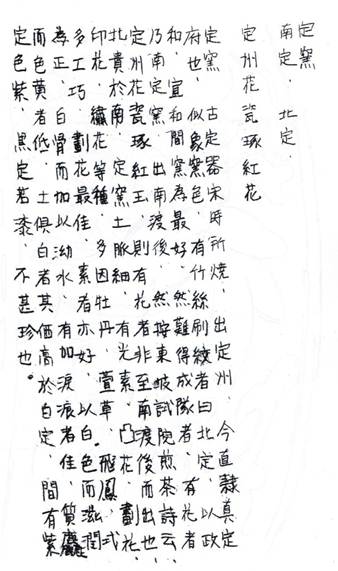 定窯
南定、北定、
定州花瓷琢紅花
定窯、古定器宋時所燒、出定州、今直隸真定
府也、似象窯色、有竹絲刷絞者曰北定、以政
和、宜和間窯為最好、然難得成隊者、有花者
乃南定窯、出南渡後、然按東坡試院煎茶詩云
定州花瓷琢紅玉、則有花者非至南渡後而出也
北貴於南、定窯土脈細、有光素、凸花、劃花
印花、繡花等種、多因牡丹、萱草、飛鳳、式
多工巧、劃花最佳、素者亦好、以白色而滋潤
為正、白骨而加以泑水、有加淚痕者佳、質麤
而色黃者低、土俱白者其価高於白定、間有紫
定色紫、黑定若漆、不甚珍也。